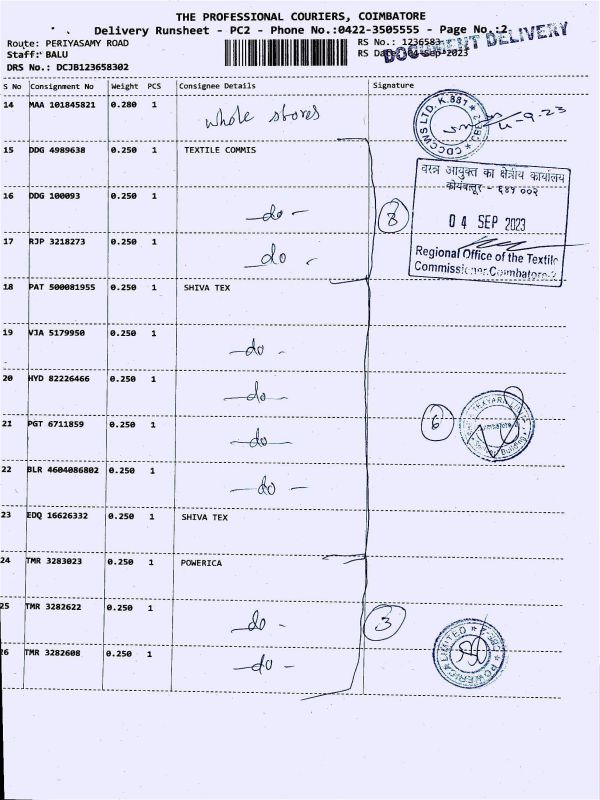 THE PROFESSIONAL COURIERS, COIMBATORE
Delivery Runsheet - PC2 - Phone No.:0422-3505555 - Page No.:2
DOCUMENT DELIVERY
Route: PERIYASAMY ROAD
RS No.: 1236583
Staff: BALU
RS Date: 04-Sep-2023
DRS No.: DCJB123658302
S No Consignment No Weight PCS Consignee Details Signature
14 MAA 101845821 0.280 1 whole stores
CDCCWS LTD. K.881
4-9-23
15 DDG 4989638 0.250 1 TEXTILE COMMIS
वस्त्र आयुक्त का क्षेत्रीय कार्यालय
कोयंबतूर - ६४१ ००२
16 DDG 100093 0.250 1 -do-
8
04 SEP 2023
17 RJP 3218273 0.250 1 -do-
Regional Office of the Textile
Commissioner, Coimbatore-2
18 PAT 500081955 0.250 1 SHIVA TEX
19 VJA 5179950 0.250 1 -do-
20 HYD 82226466 0.250 1 -do-
21 PGT 6711859 0.250 1 -do-
6
22 BLR 4604086802 0.250 1 -do-
23 EDQ 16626332 0.250 1 SHIVA TEX
24 TMR 3283023 0.250 1 POWERICA
25 TMR 3282622 0.250 1 -do-
3
26 TMR 3282608 0.250 1 -do-
POWERICA LIMITED CBE.